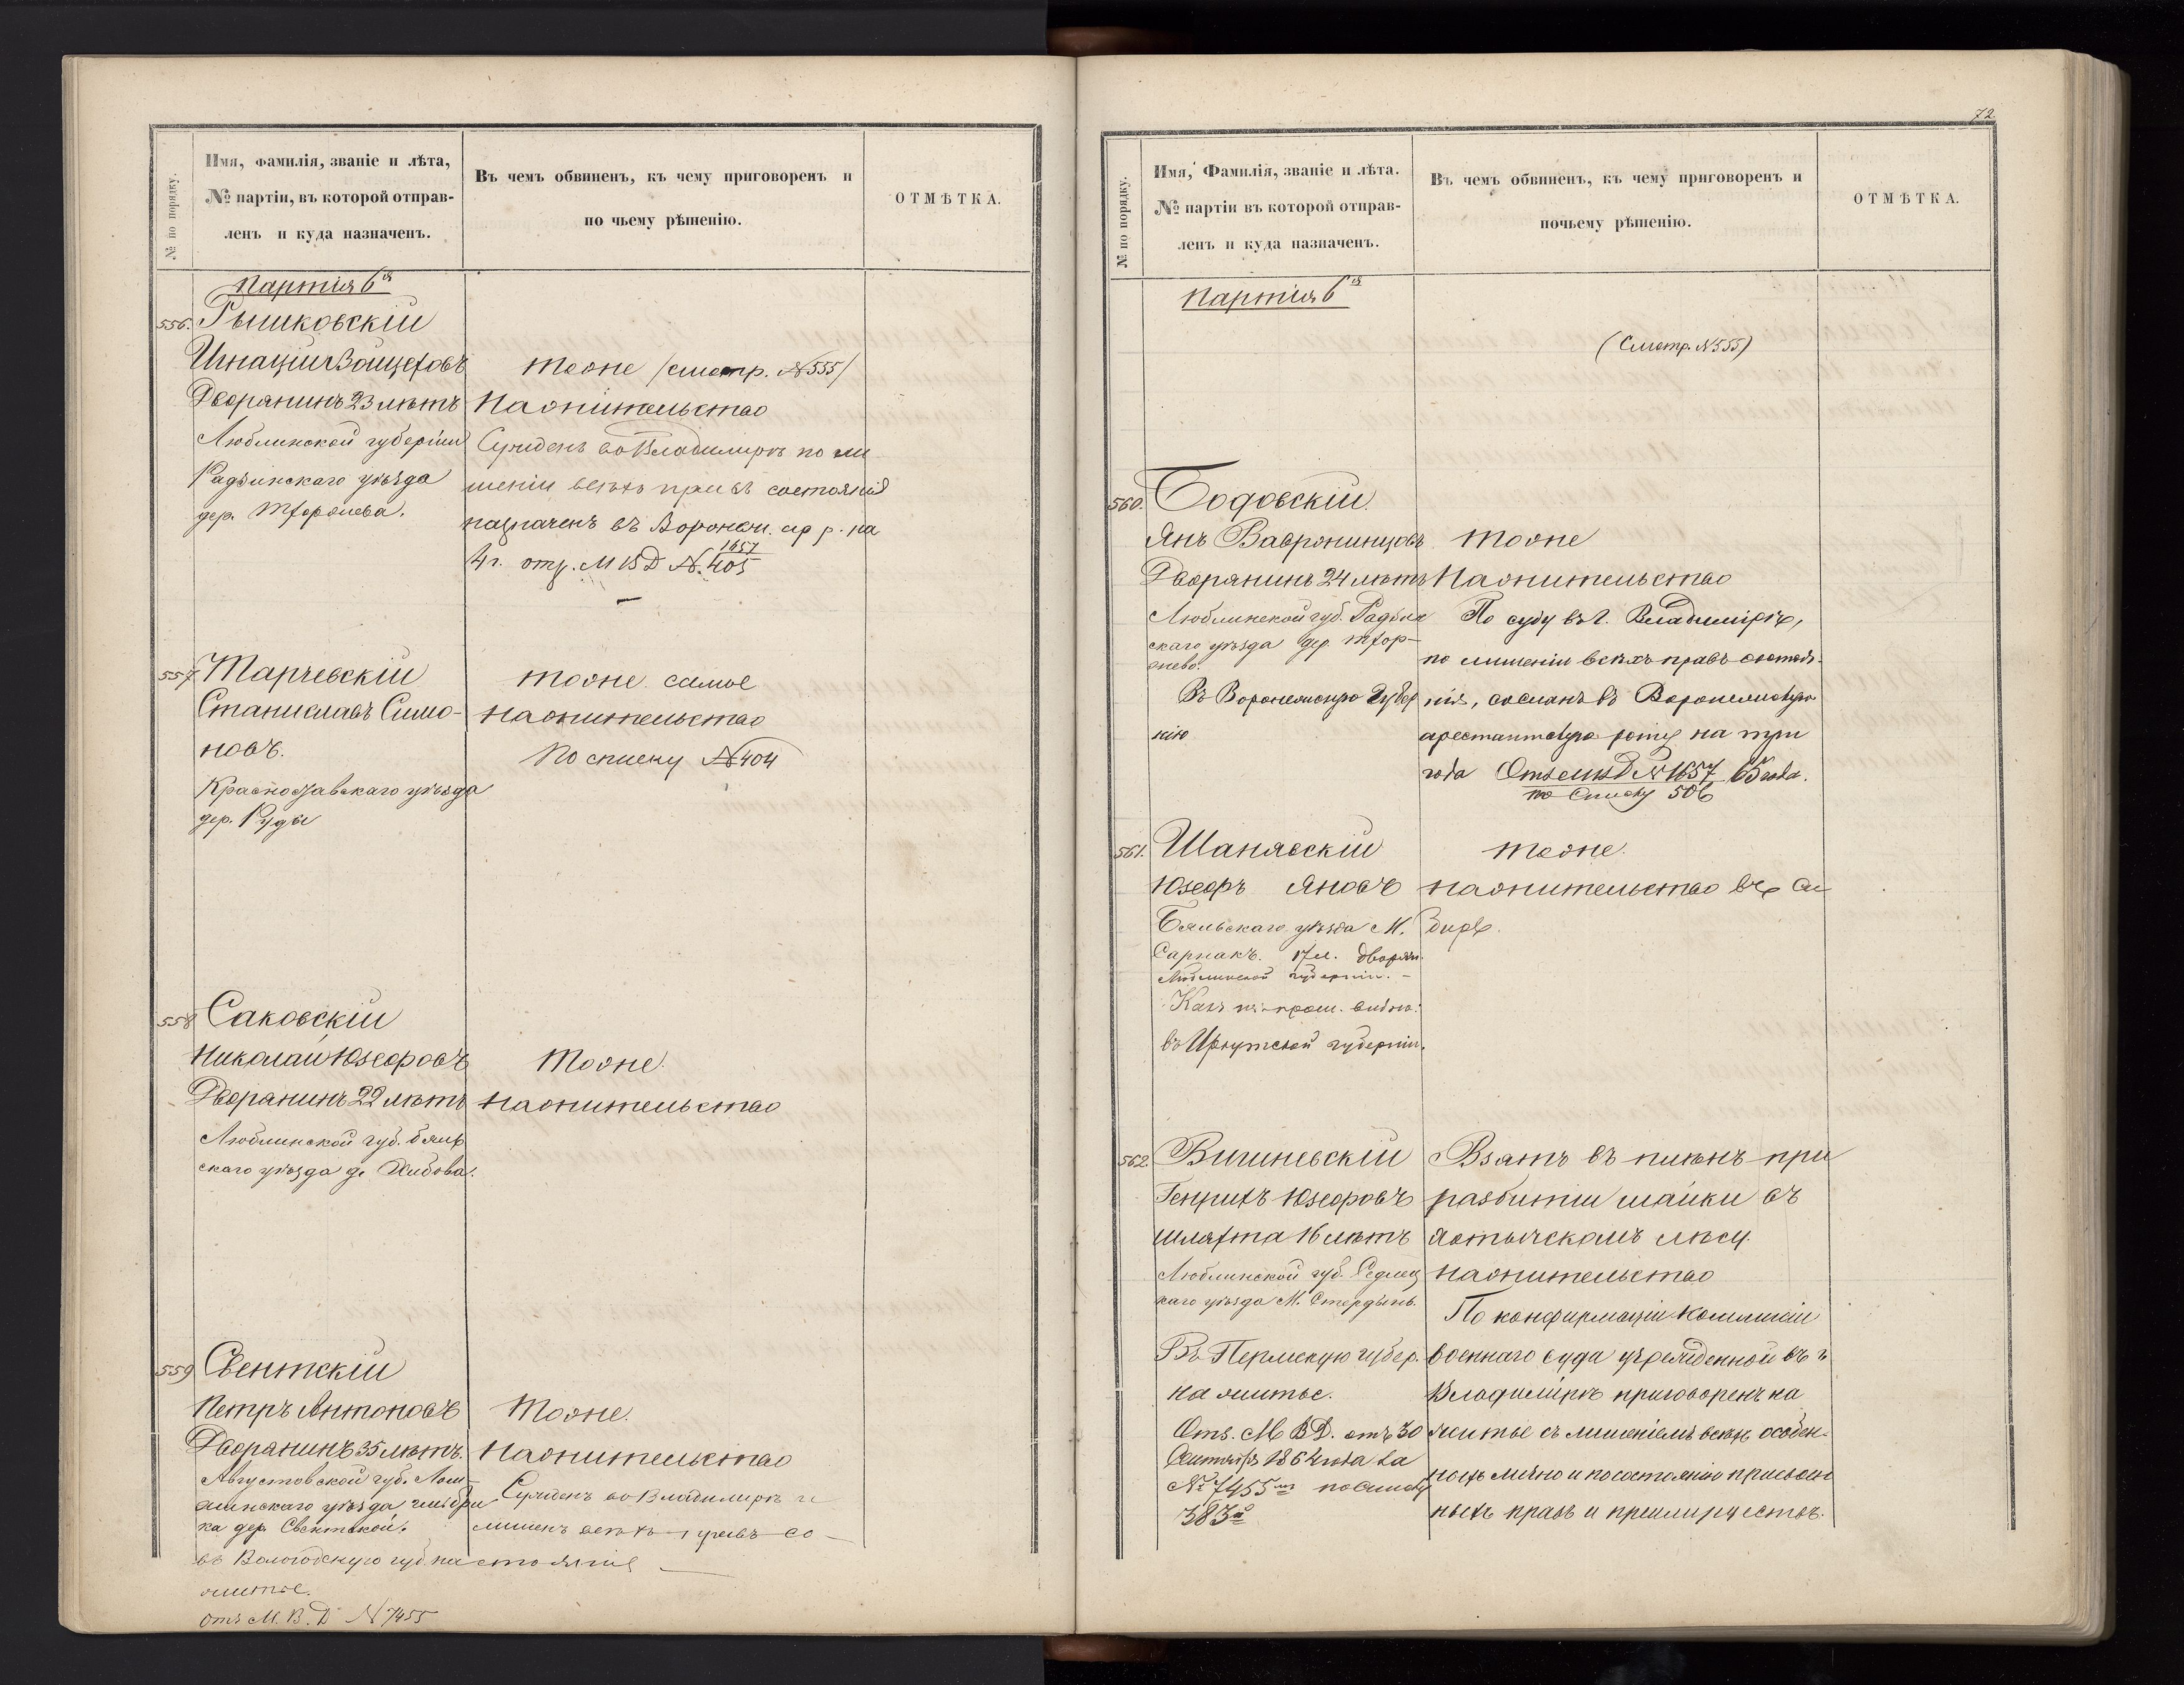 № по порядку.
Имя, Фамилія, званіе и лѣта,
№ партіи, въ которой отправ-
ленъ и куда назначенъ.
Въ чемъ обвиненъ, къ чему приговоренъ и
по чьему рѣшенію.
ОТМѢТКА.
Партія 6я
556. Гышковскій
Игнацій Войцеховъ
Дворянинъ 23 лѣтъ
Люблинской губерніи
Радзинскаго уѣзда
дер.
тоже /смотр. №555/
На жительство
Сужденъ во Владимирѣ по ли
шеніи всѣхъ правъ состоянія
назначенъ въ Воронеж. ар р. на
4 г. отз. М В Д №. 1657/405
557 Тарчевскій
Станиславъ Симо-
новъ.
Красноставскаго уѣзда
дер. Руды
тоже самое
на жительство
По списку №404
558 Саковскій
Николай Юзефовъ
Дворянинъ 22 лѣтъ
Люблинской губ. бяль
скаго уѣзда д.
Тоже.
на жительство
559 Свентскій
Петръ Антоновъ
Дворянинъ 35 лѣтъ.
Августовской губ. Лом-
жинскаго уѣзда
ка дер. Свентской.
въ Вологодскую губ. на
житье.
Отъ М. В. Д №7455
Тоже.
На жительство
Сужденъ во Владимирѣ и
лишенъ всѣхъ правъ со-
стоянія
72
№ по порядку.
Имя, Фамилія, званіе и лѣта.
№ партіи въ которой отправ-
ленъ и куда назначенъ.
Въ чемъ обвиненъ, къ чему приговоренъ и
почьему рѣшенію.
ОТМѢТКА.
Партія 6я
(Смотр. №555)
560. Бодовскій
Янъ Вавржинцовъ
Дворянинъ 24 лѣтъ
Люблинской губ. Радзин
скаго уѣзда дер.
Въ Воронежскую Губер
нію
Тоже
На жительство
По суду въ г. Владимірѣ,
по лишеніи всѣхъ правъ состоя-
нія, сосланъ въ Воронежскую
арестантскую роту на три
года Отз. М В Д №1657 65 года.
по Списку 506
561. Шанявскій
Юзефъ Яновъ
Бяльскаго уѣзда М.
Сарнакъ. 17 л. дворян.
Люблинской губерніи. -
въ Иркутской губерніи.
тоже.
на жительство въ Си
бирь.
562. Вишневскій
Генрихъ Юзефовъ
шляхта 16 лѣтъ
Люблинской губ. Седлец
каго уѣзда М. Стердынь.
Въ Пермскую губер.
на житье.
Отз. М В Д. отъ 30
Сентября 1864 года за
№ 7455 по списку
383й
Взятъ въ плѣнъ при
разбитіи шайки въ
лѣсу.
на жительство
По конфирмаціи Коммисіи
военнаго суда учрежденной въ г.
Владимірѣ приговоренъ на
житье съ лишеніемъ всѣхъ особен-
ныхъ лично и по состоянію присвоен
ныхъ правъ и преимуществъ.